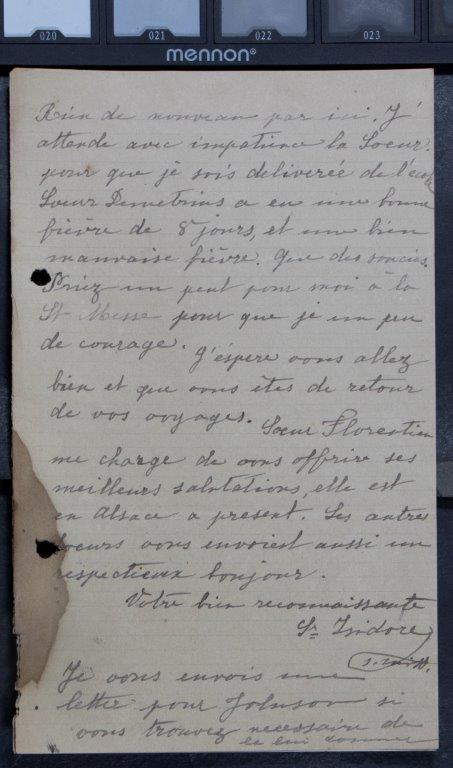 020 021 022 023
mennon®
Rien de nouveau par ici. J'
attende avec impatience la Soeur.
pour que je sois deliverée de l'école
Soeur Demetrius a en une bonne
fièvre de 8 jours, et une bien
mauvaise fièvre. Que des soucies.
Priez un peut pour moi à la
St Messe pour que je un peu
de courage. J'éspere vous allez
bien et que vous êtes de retour
de vos voyages. Soeur Florestien
me charge de vous offrire ses
meilleurs salutations, elle est
en Alsace a present. Les autres
soeurs vous envoient aussi un
respectieux bonjour.
Votre bien reconnaissante
Sr Isidore
Je vous envois une
letter pour Johnson si
vous trouvez necessaire de
le lui donner